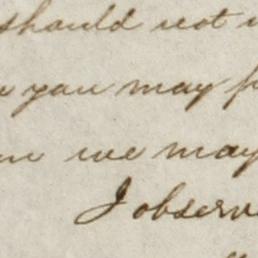 should not
you may
we may
I observ